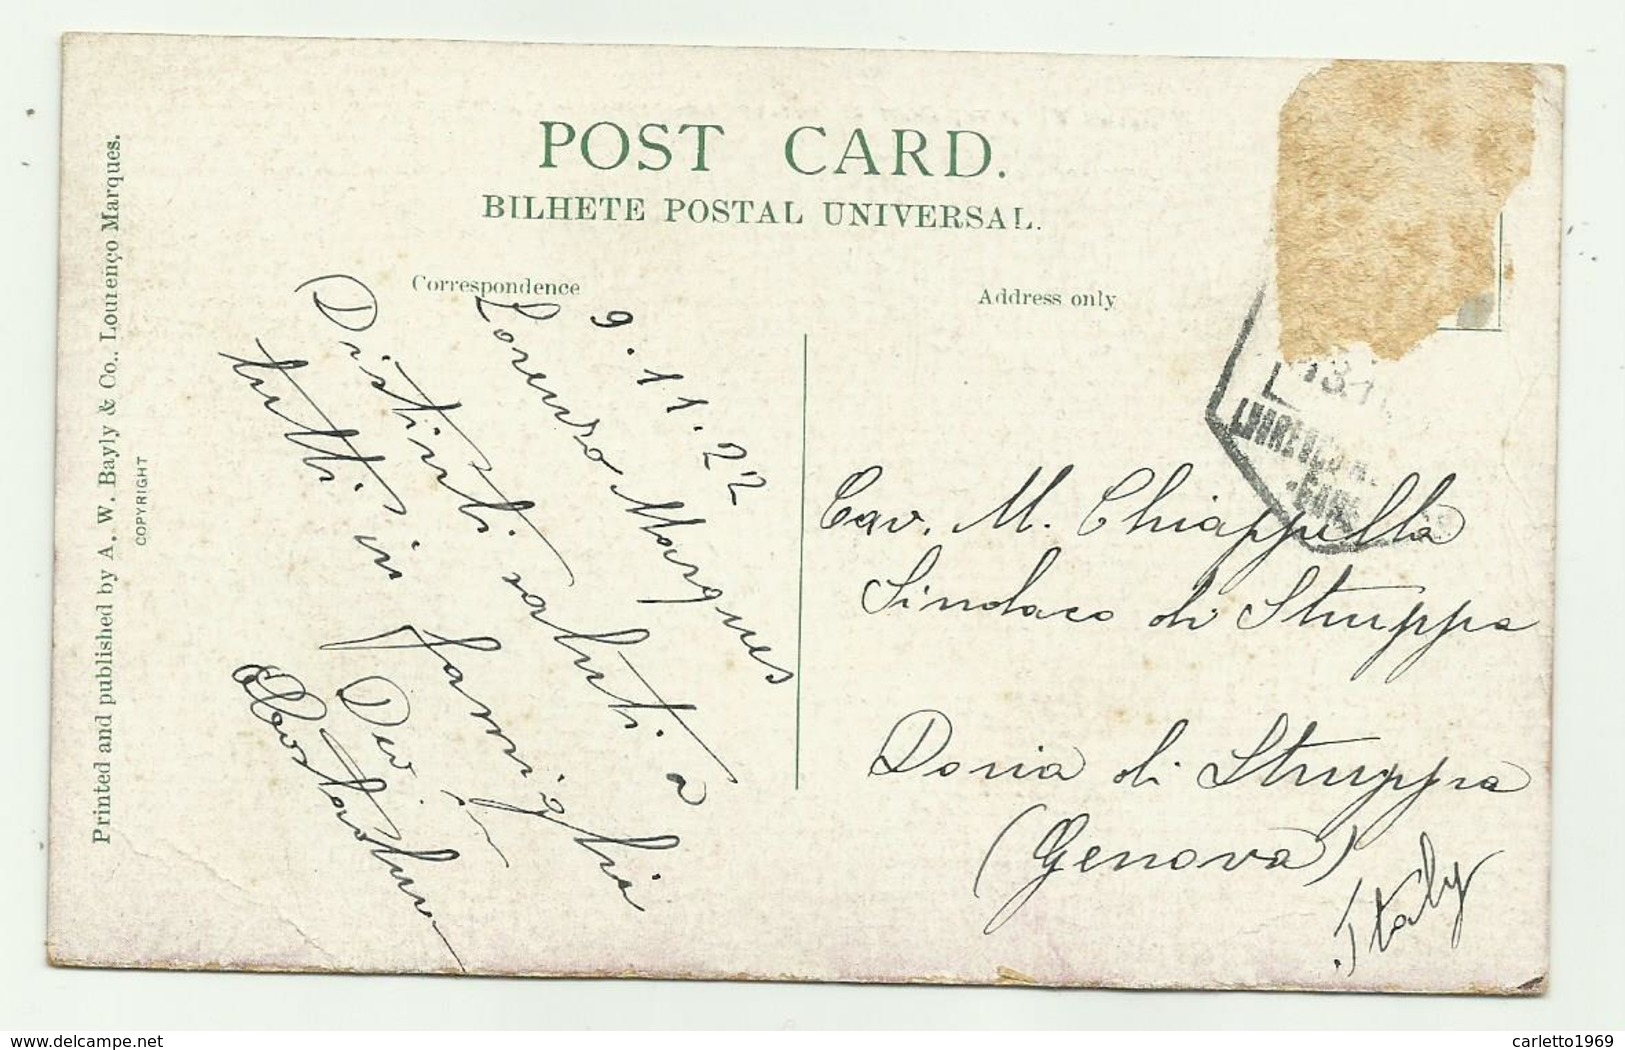 POST CARD.
BILHETE POSTAL UNIVERSAL.
Correspondence
Address only
Printed and published by A. W. Bayly & Co., Lourenço Marques.
COPYRIGHT
9.11.22
Lorenzo Marques
Distinti saluti a
tutti in famiglia
Dev.
Cav. M. Chiappella
Sindaco di Struppa
Doria di Struppa
(Genova)
Italy
www.delcampe.net
carletto1969